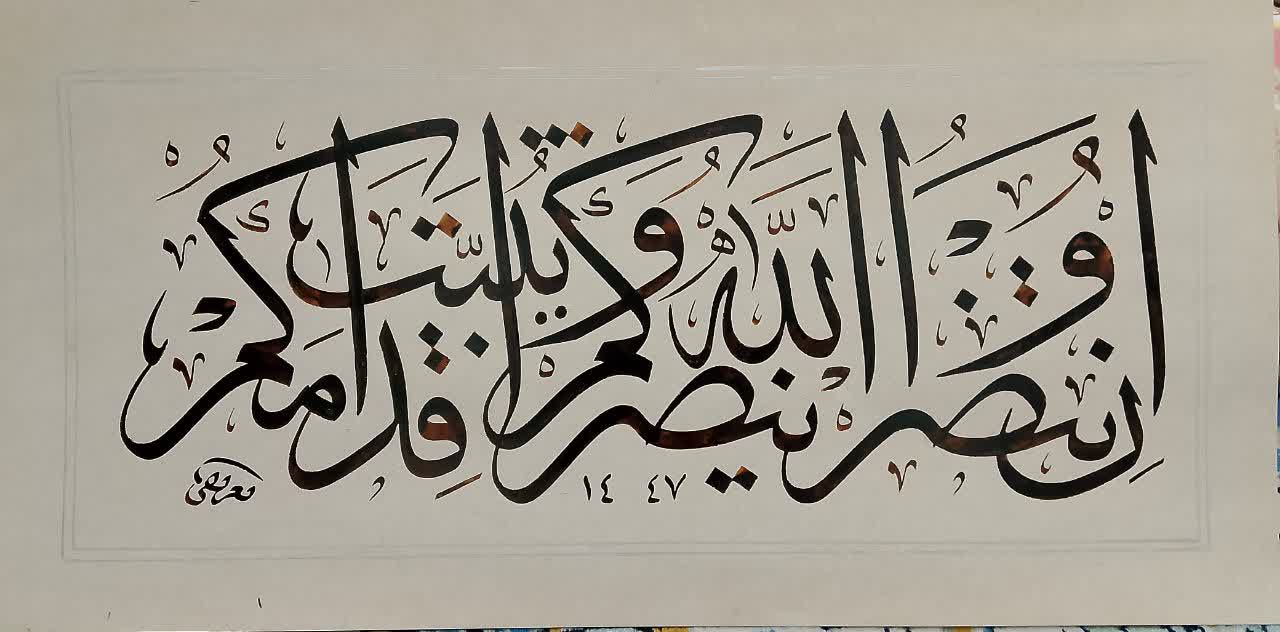 إِنْ تَنْصُرُوا اللَّهَ يَنْصُرْكُمْ وَيُثَبِّتْ أَقْدَامَكُمْ
١٤٤٧